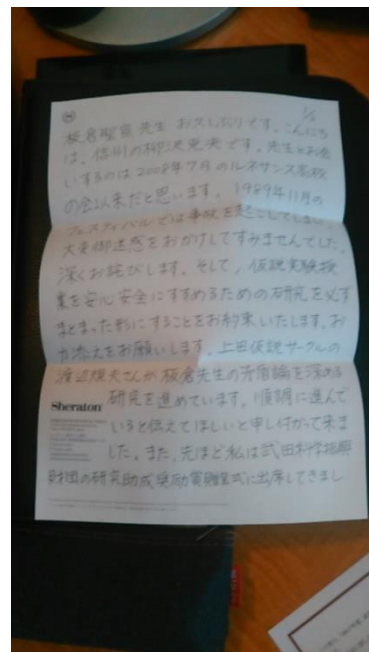 1/2
板倉聖宣先生 お久しぶりです。こんにち
は、信州の柳沢克央です。先生とお会
いするのは2008年7月のルネサンス高校
の会以来だと思います。1989年11月の
フェスティバルでは事故を起こしてしまい、
大変御迷惑をおかけしてすみませんでした。
深くお詫びします。そして、仮説実験授
業を安心安全にすすめるための研究を必ず
まとまった形にすることをお約束いたします。お
力添えをお願いします。上田仮説サークルの
渡辺規夫さんが板倉先生の矛盾論を深める
研究を進めています。順調に進んで
いると伝えてほしいと申し付かって来ま
した。また、先ほど私は武田科学振興
財団の研究助成奨励賞贈呈式に出席してきまし
Sheraton